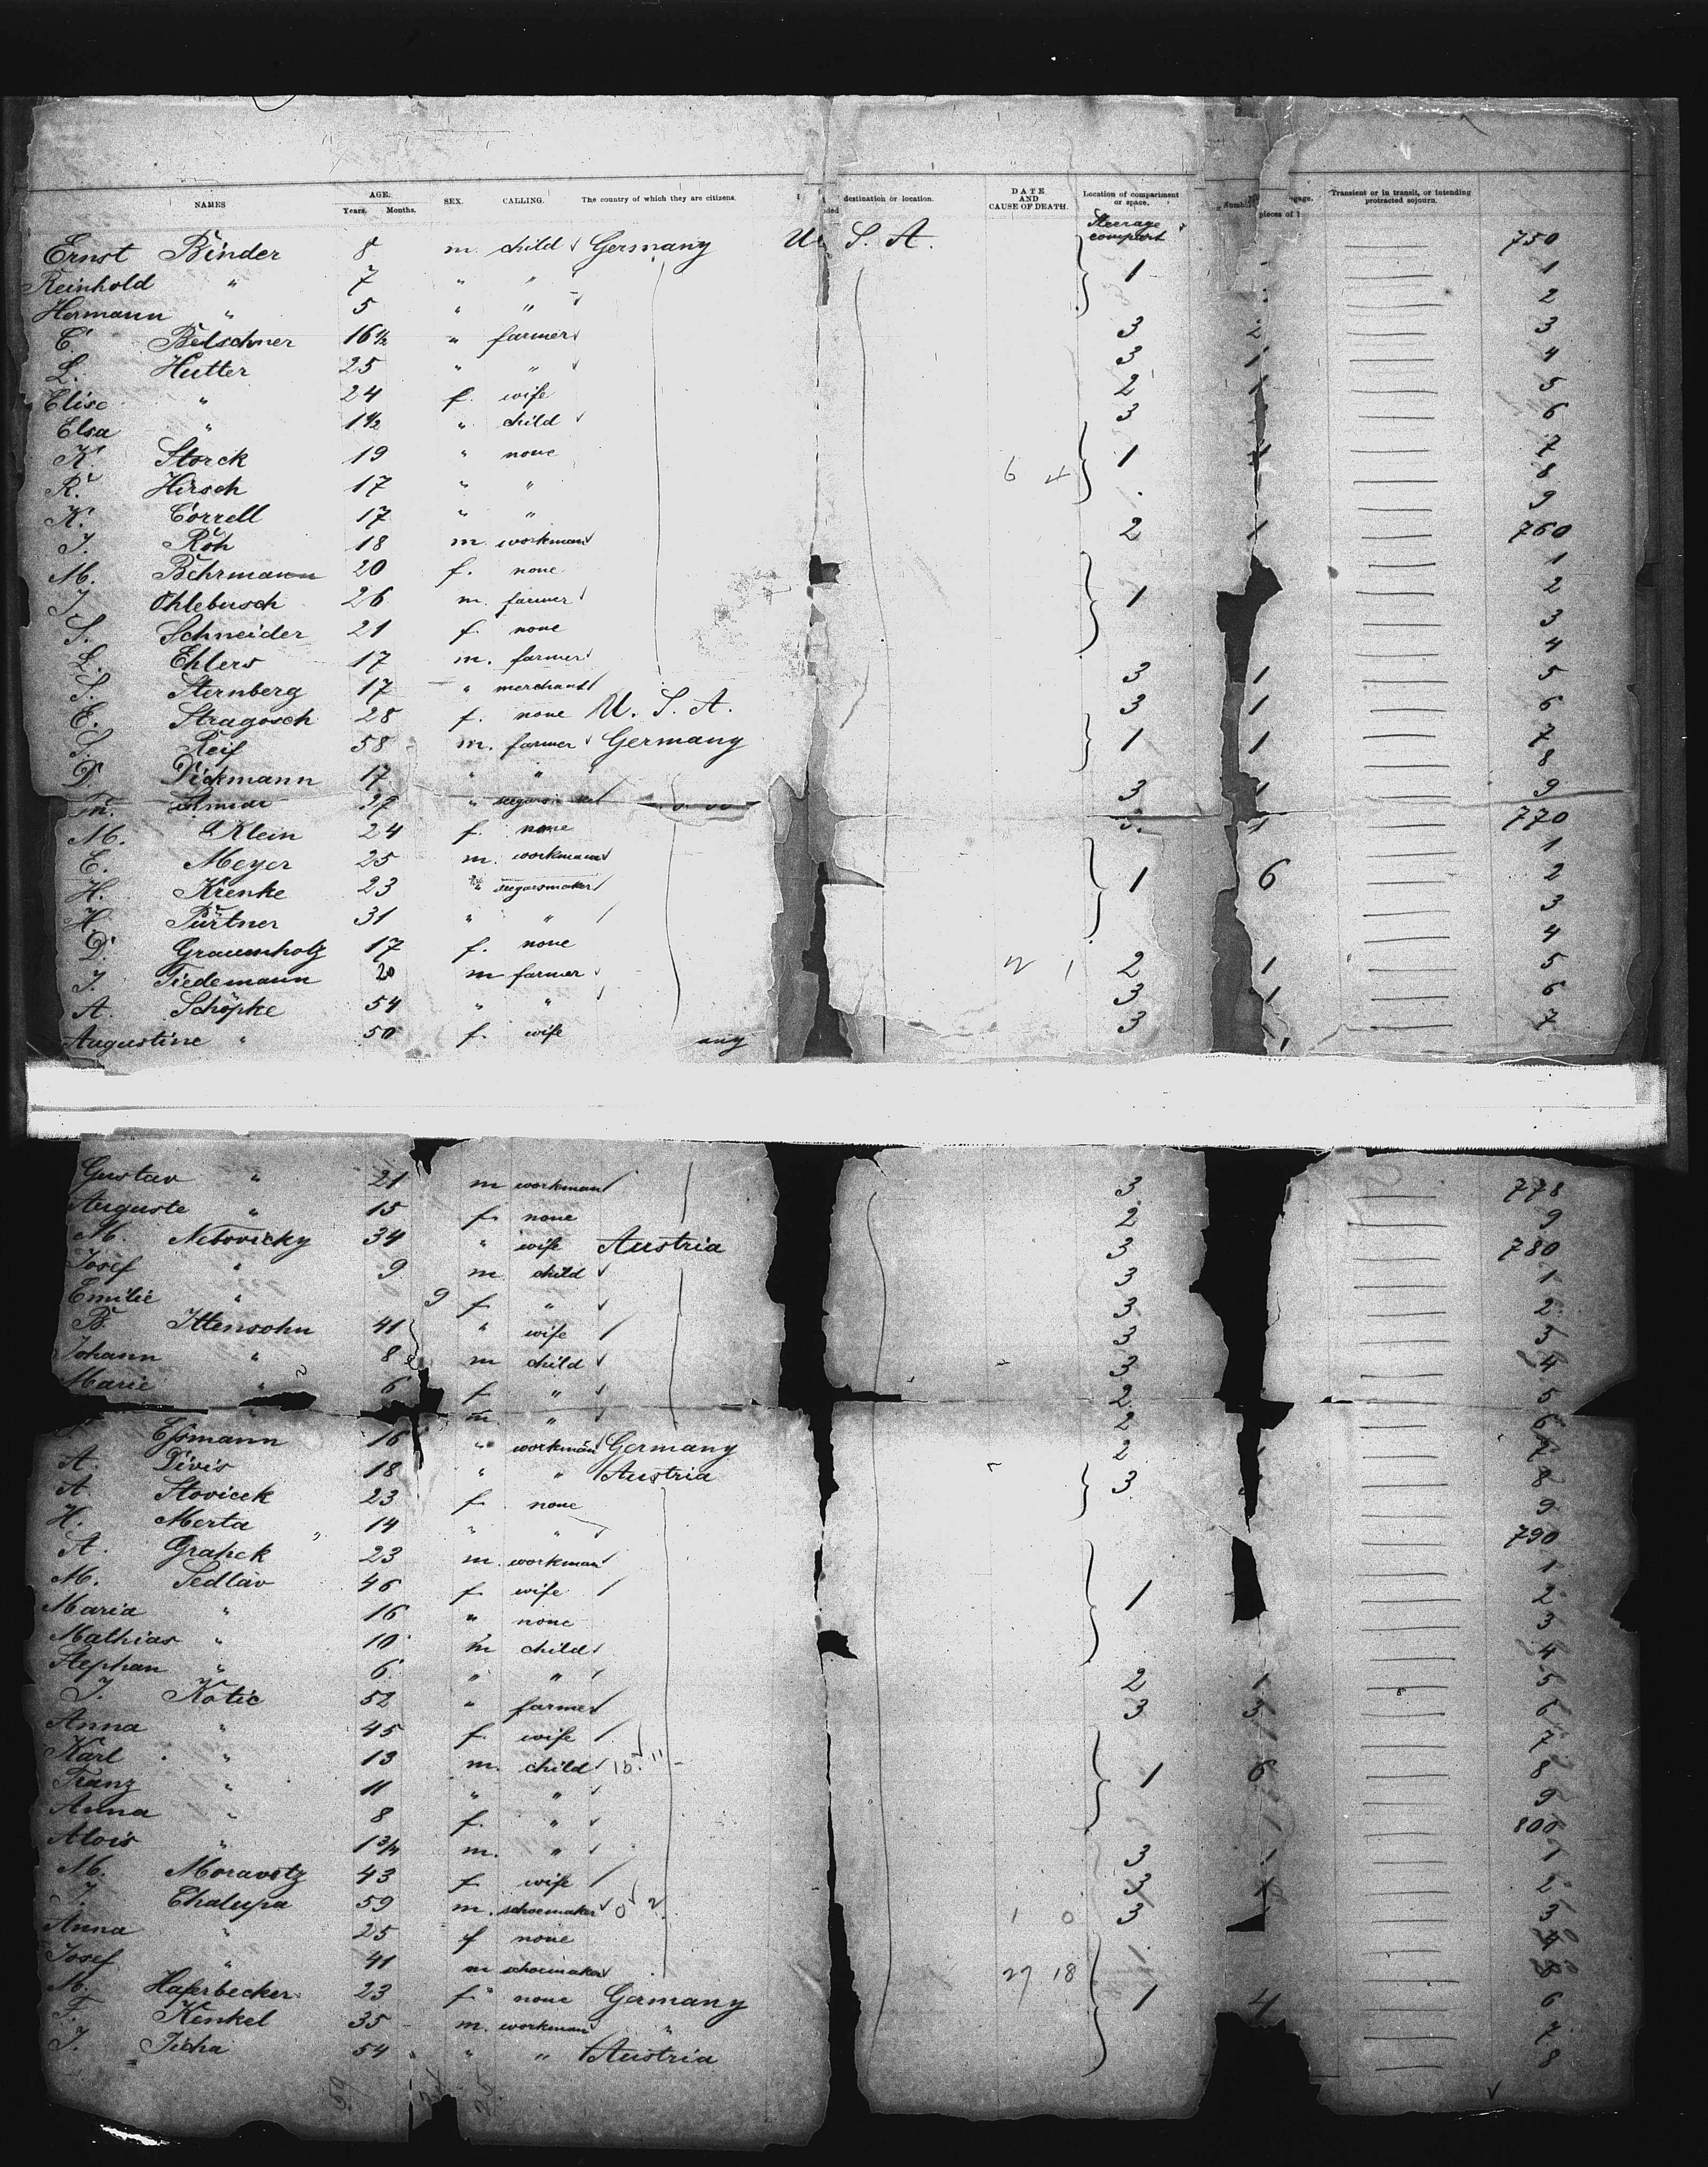 NAMES AGE. Years. Months. SEX. CALLING. The country of which they are citizens. destination or location. DATE AND CAUSE OF DEATH. Location of compartment or space. Number pieces of Transient or in transit, or intending protracted sojourn.
Steerage compart
Ernst Binder 8 m. child Germany U. S. A. 750
Reinhold " 7 " " 1 1
Hermann " 5 " " 2
E. Belschner 16 1/2 " farmer 3 2 3
L. Hutter 25 " " 3 1 4
Elise " 24 f. wife 2 1 5
Elsa " 1 1/2 " child 3 6
K. Storck 19 " none 1 7
R. Hirsch 17 " " 6 4 8
K. Correll 17 " " 9
J. Röh 18 m. workman 2 1 760
M. Behrmann 20 f. none 1
J. Ohlebusch 26 m. farmer 1 2
S. Schneider 21 f. none 3
L. Ehlers 17 m. farmer 4
S. Sternberg 17 " merchant 3 1 5
E. Stragosch 28 f. none U. S. A. 3 1 6
S. Reif 58 m. farmer Germany 1 1 7
D. Dickmann 17 " " 8
27 " 3 1 9
M. Klein 24 f. none 1 770
E. Meyer 25 m. workman 1
H. Krenke 23 " segarsmaker 1 6 2
H. Pürtner 31 " " 3
D. Graumholz 17 f. none 4
J. Tiedemann 20 m farmer 2 1 5
A. Schöpke 54 " " 3 1 6
Augustine " 50 f. wife any 3 1 7
Gustav " 21 m workman 3 778
Auguste " 15 f. none 2 9
M. Nebovicky 34 " wife Austria 3 780
Josef " 9 m child 3 1
Emilie " 9 f. " 3 2
B. Ittensohn 41 " wife 3 3
Johann " 8 m child 3 4
Marie " 6 f. " 2 5
" m. " 2 6
Essmann 16 " workman Germany 2 7
A. Divis 18 " " Austria 3 8
A. Slovicek 23 f. none 9
H. Merta 14 " " 790
A. Grahek 23 m. workman 1
M. Sedlav 46 f. wife 1 2
Maria " 16 " none 3
Mathias " 10 m child 4
Stephan " 6 " " 2 1 5
J. Kotic 52 " farmer 3 3 6
Anna " 45 f. wife 7
Karl " 13 m. child 1 6 8
Franz " 11 " " 9
Anna " 8 f. " 800
Alois " 1 3/4 m. " 3 1 1
M. Moravetz 43 f. wife 3 2
J. Chalupa 59 m. schoemaker 1 0 3 3
Anna " 25 f none 4
Josef " 41 m schoemaker 27 18
M. Haferbecker 23 f. none Germany 1 4 6
F. Kenkel 35 m. workman " 7
J. Ticha 54 " " Austria 8